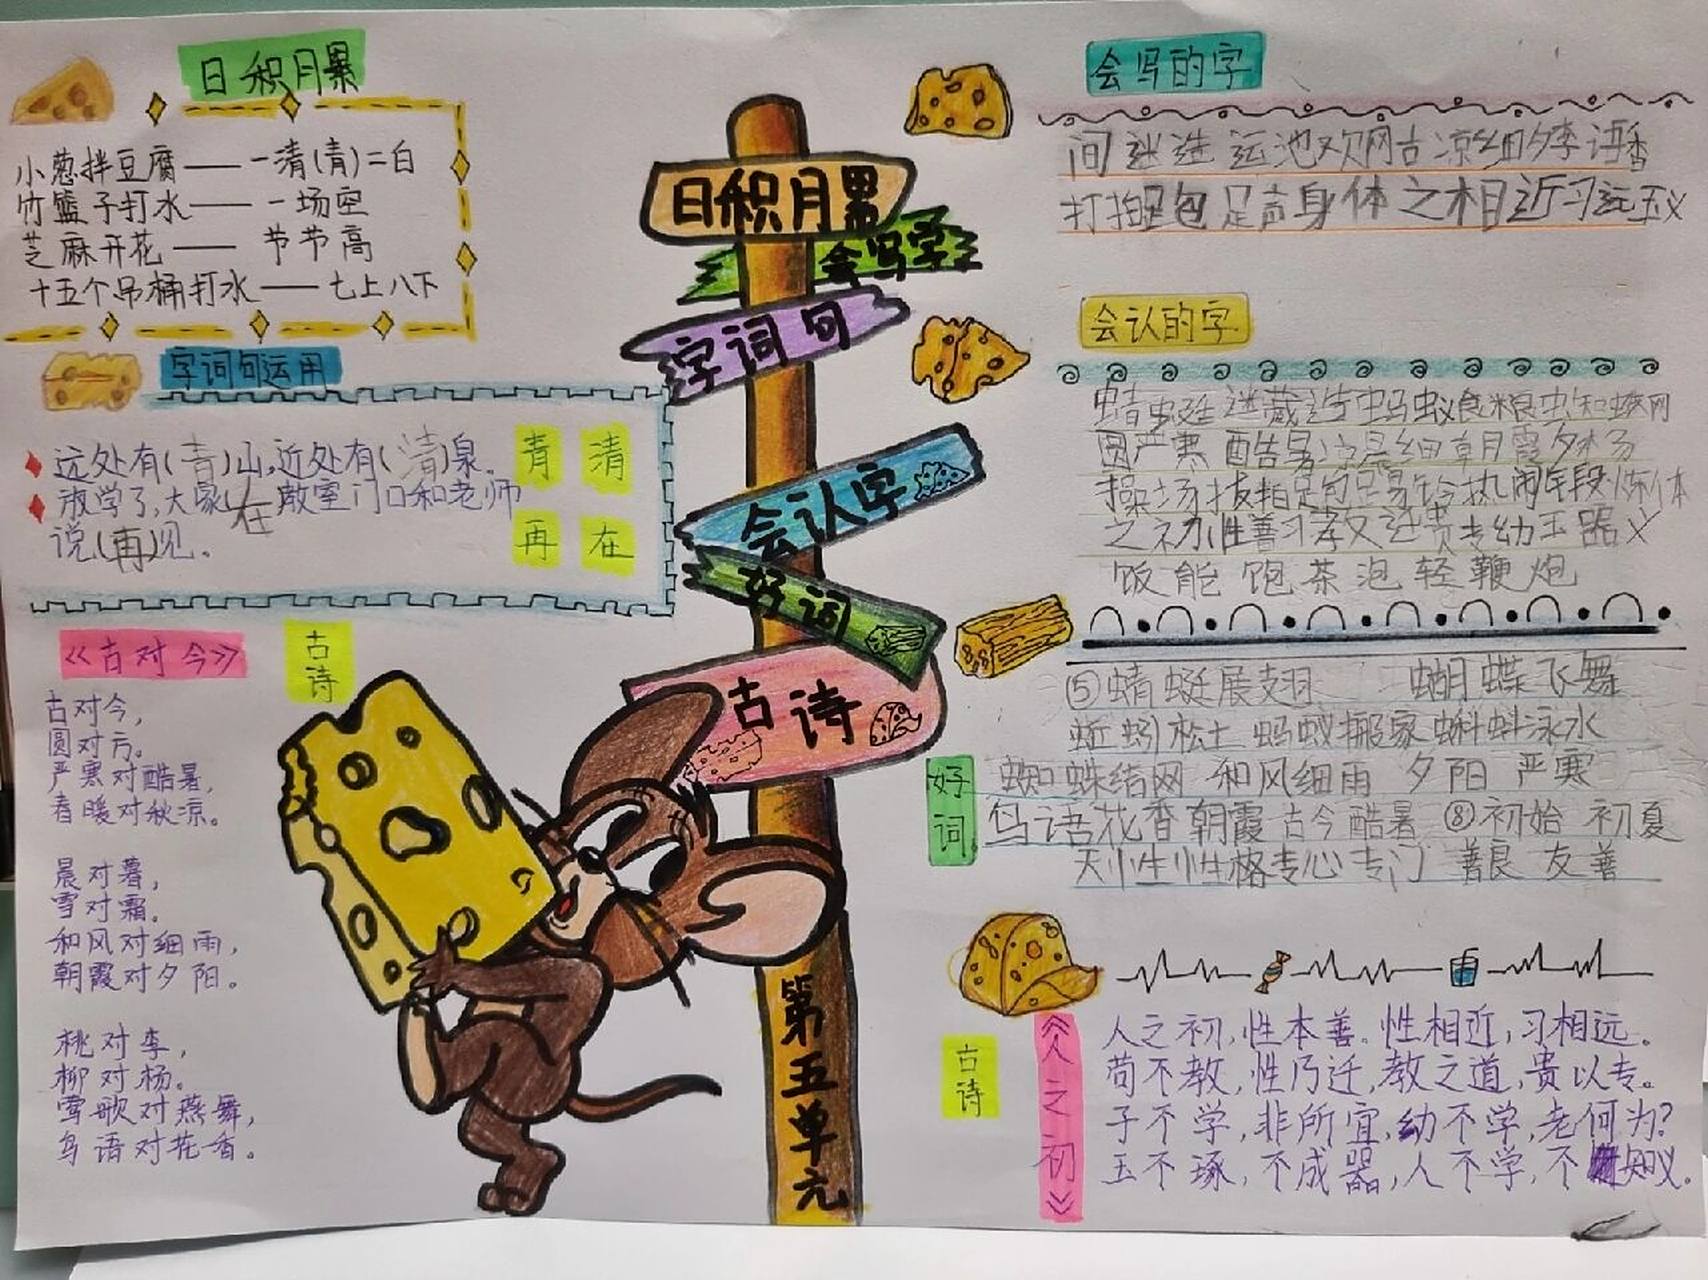 日积月累
小葱拌豆腐——一清(青)二白
竹篮子打水——一场空
芝麻开花——节节高
十五个吊桶打水——七上八下
字词句运用
远处有(青)山,近处有(清)泉。
放学了,大家(在)教室门口和老师
说(再)见。
青 清
再 在
《古对今》
古诗
古对今,
圆对方。
严寒对酷暑,
春暖对秋凉。
晨对暮,
雪对霜。
和风对细雨,
朝霞对夕阳。
桃对李,
柳对杨。
莺歌对燕舞,
鸟语对花香。
日积月累
会写字
字词句
会认字
好词
古诗
第五单元
会写的字
间迷造运池欢网古凉细夕李语香
打拍跑包足声身体之相近习远玉义
会认的字
蜻蜓迷藏造蚂蚁食粮虫知蛛网
圆严寒酷暑凉晨细朝霞夕杨
操场拔拍跑足铃热闹锻炼体
之初性善习教迁贵专幼玉器义
饭能饱茶泡轻鞭炮
好词
⑤蜻蜓展翅 蝴蝶飞舞
蚯蚓松土 蚂蚁搬家 蝌蚪泳水
蜘蛛结网 和风细雨 夕阳 严寒
鸟语花香 朝霞 古今 酷暑 ⑧初始 初夏
天性 性格 专心 专门 善良 友善
古诗
《人之初》
人之初,性本善。性相近,习相远。
苟不教,性乃迁,教之道,贵以专。
子不学,非所宜,幼不学,老何为?
玉不琢,不成器,人不学,不知义。